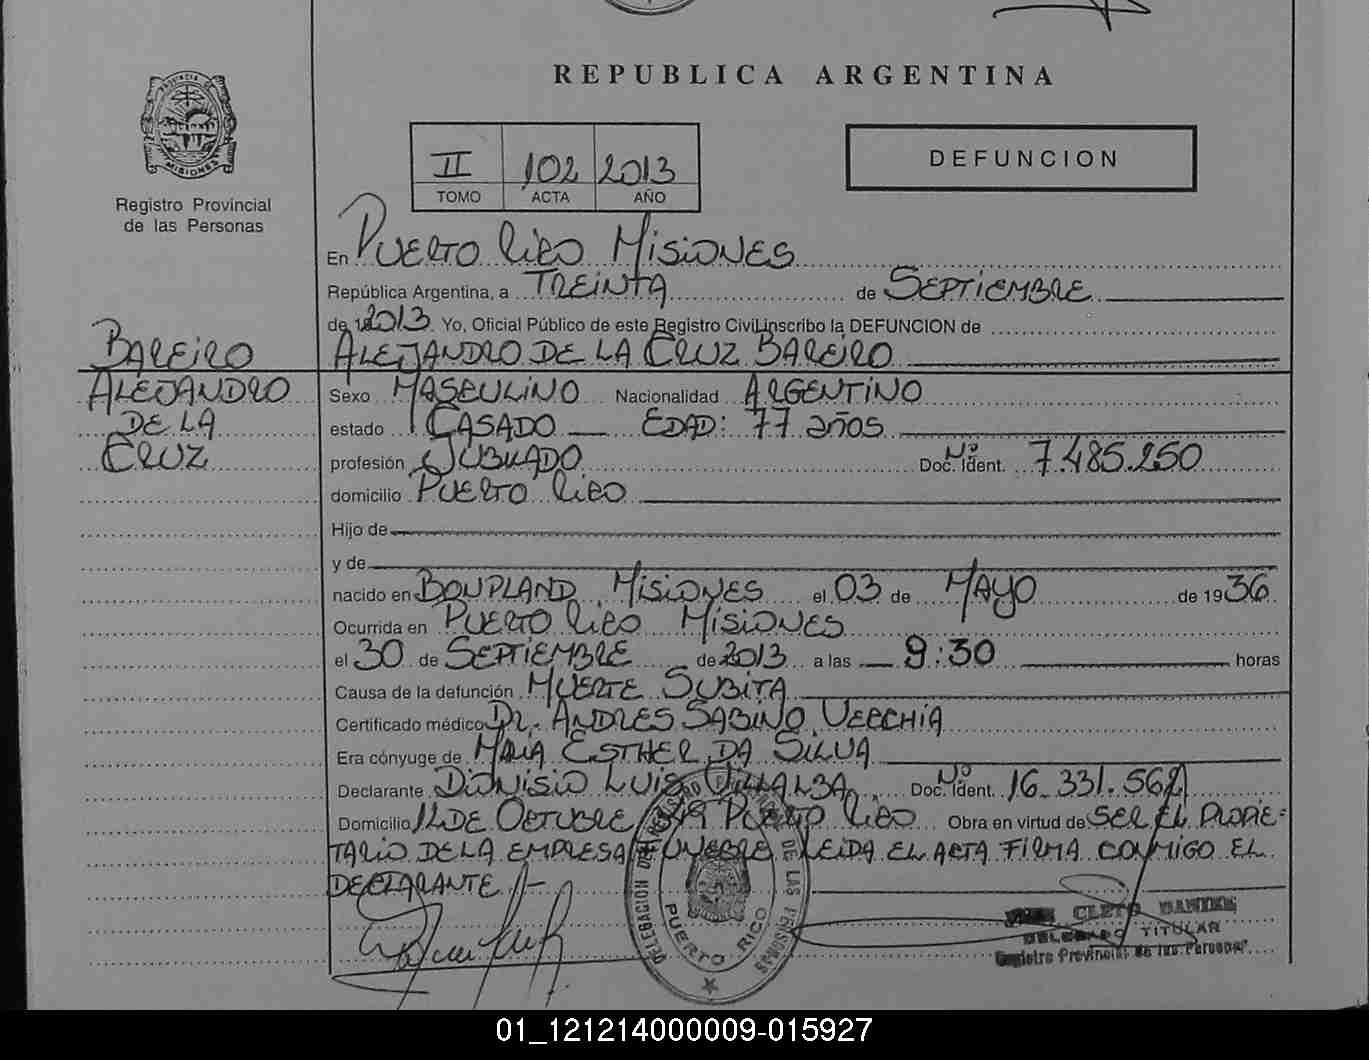 REPUBLICA ARGENTINA
PROVINCIA DE
MISIONES
Registro Provincial
de las Personas
II 102 2013
TOMO ACTA AÑO
DEFUNCION
En PUERTO RICO MISIONES
República Argentina, a TREINTA de SEPTIEMBRE
de 2013 Yo, Oficial Público de este Registro Civil inscribo la DEFUNCION de
BAREIRO
ALEJANDRO
DE LA
CRUZ
ALEJANDRO DE LA CRUZ BAREIRO
Sexo MASCULINO Nacionalidad ARGENTINO
estado CASADO EDAD: 77 años
profesión JUBILADO Doc. Ident. Nº 7.485.250
domicilio PUERTO RICO
Hijo de
y de
nacido en BONPLAND MISIONES el 03 de MAYO de 1936
Ocurrida en PUERTO RICO MISIONES
el 30 de SEPTIEMBRE de 2013 a las 9:30 horas
Causa de la defunción MUERTE SUBITA
Certificado médico Dr. ANDRES SABINO VECCHIA
Era cónyuge de MARIA ESTHER DA SILVA
Declarante DIONISIO LUIS VILLALBA Doc. Ident. Nº 16.331.562
Domicilio 12 DE OCTUBRE PUERTO RICO Obra en virtud de SER EL PROPIE=
TARIO DE LA EMPRESA FUNEBRE LEIDA EL ACTA FIRMA CONMIGO EL
DECLARANTE.-
DELEGACION DEL REGISTRO PROVINCIAL DE LAS PERSONAS
PUERTO RICO
CLETO
DELEGADO TITULAR
Registro Provincial de las Personas
01_121214000009-015927